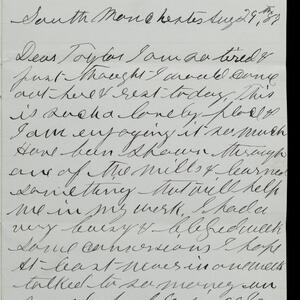 South Manchester Aug 29th/80
Dear Taylor I am so tired &
just thought I would come
out here & rest today, this
is such a lovely place &
I am enjoying it so much
Have been shown through
one of the mills & learned
something that will help
me in my work, I had a
very busy & blessed week
some conversions I hope
At least never in one week
talked to so many on